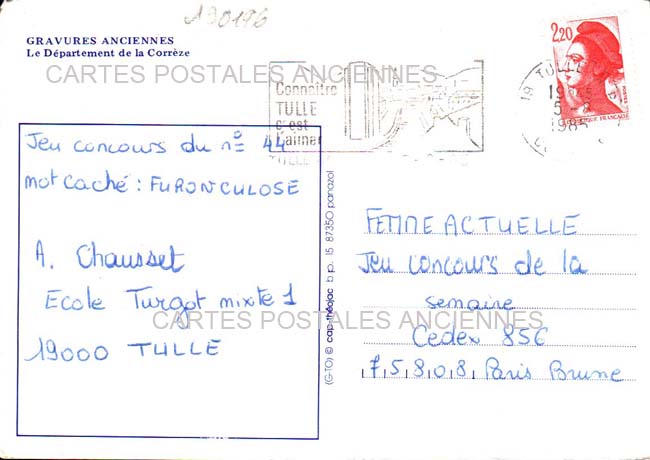 190196
GRAVURES ANCIENNES
Le Département de la Corrèze
CARTES POSTALES ANCIENNES
2,20
Connaître
TULLE
c'est
l'aimer
TULLE
19 TULLE
5-8
1985
Jeu concours du n° 44
mot caché : FURONCULOSE
A. Chausset
Ecole Turgot mixte 1
19000 TULLE
CARTES POSTALES ANCIENNES
(G-TO) © cap-théojac b.p. 15 87350 panazol
FEMME ACTUELLE
Jeu concours de la
semaine
Cedex 856
75808 Paris Brune